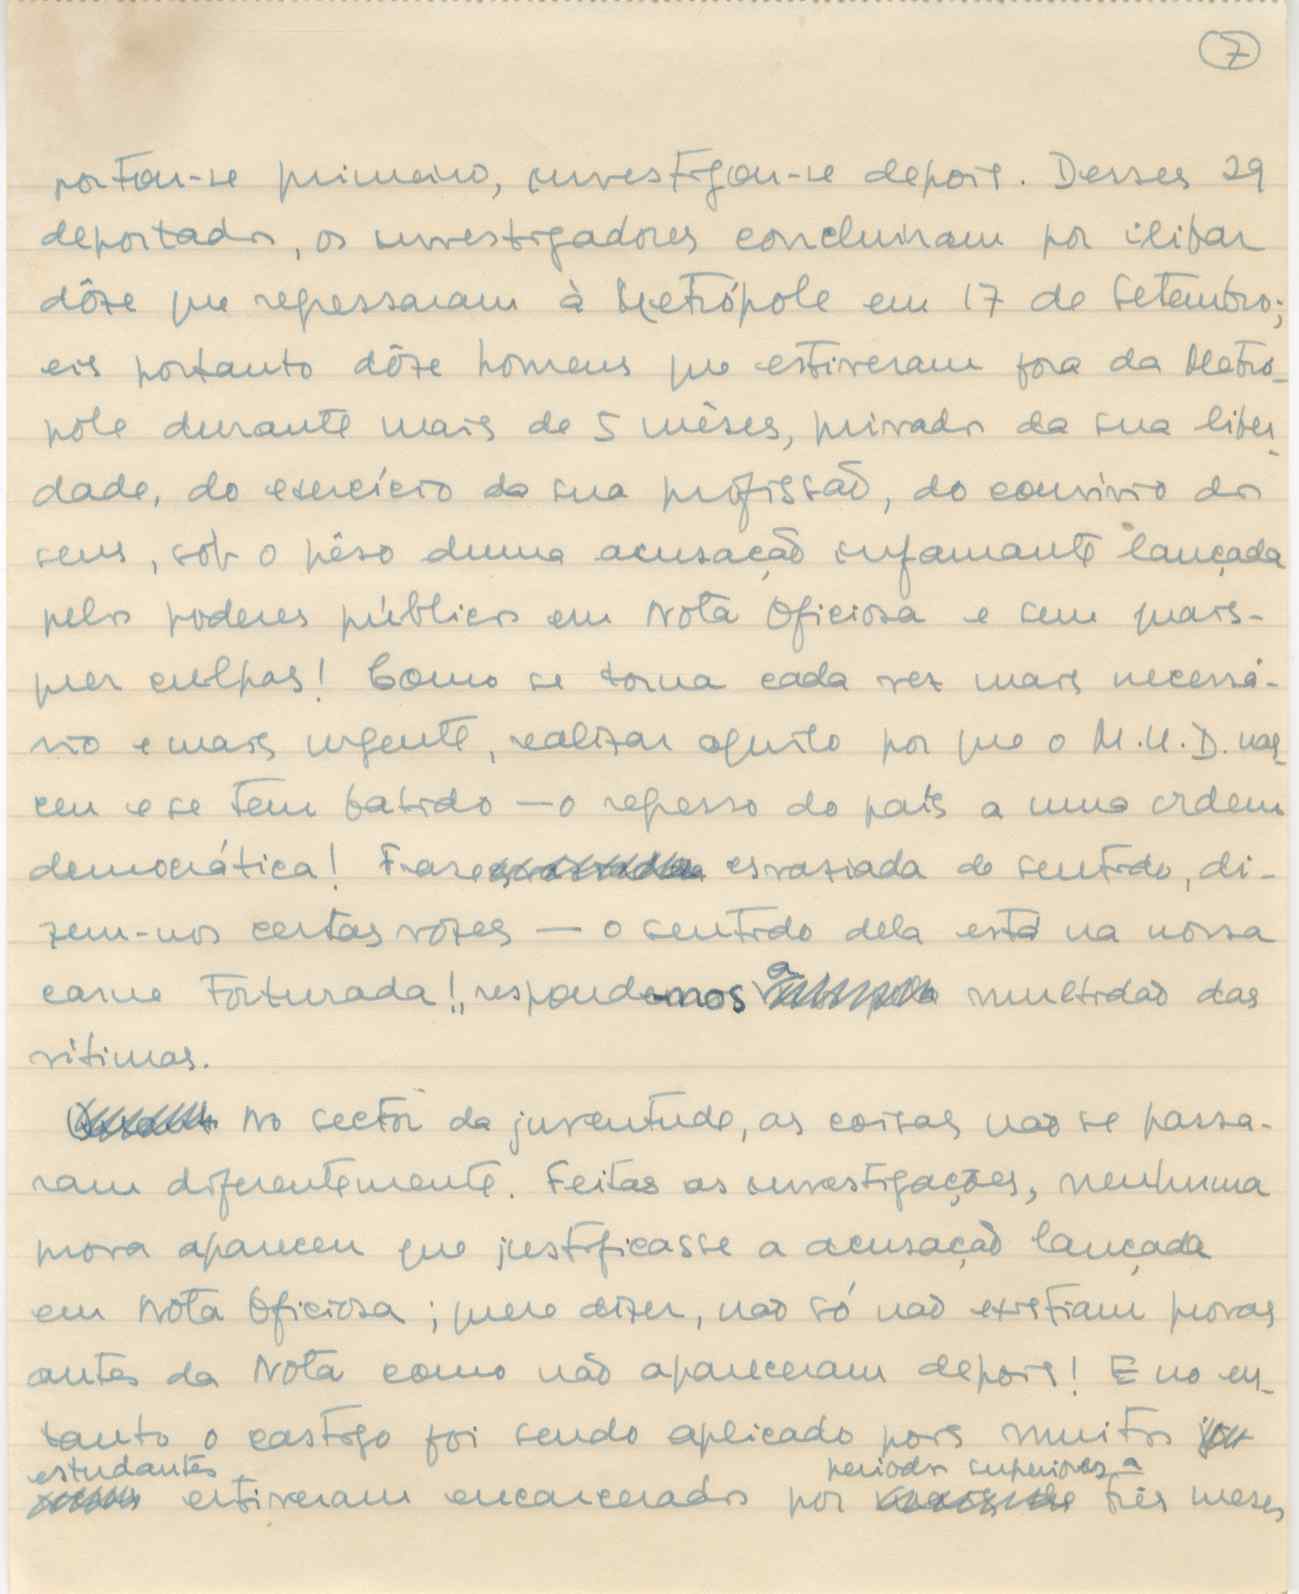 7
portou-se primeiro, investigou-se depois. Desses 29
deportados, os investigadores concluiram por ilibar
dôze que regressaram à Metrópole em 17 de Setembro;
eis portanto dôze homens que estiveram fora da Metró-
pole durante mais de 5 mêses, privados da sua liber-
dade, do exercício da sua profissão, do convívio dos
seus, sob o pêso duma acusação infamante lançada
pelos poderes públicos em Nota Oficiosa e sem quais-
quer culpas! Como se torna cada vez mais necessá-
rio e mais urgente, realizar aquilo por que o M.U.D. nas-
ceu e se tem batido — o regresso do país a uma ordem
democrática! Frase esvaziada de sentido, di-
zem-nos certas vozes — o sentido dela está na nossa
carne torturada!, respondemos a multidão das
vítimas.
No sector da juventude, as coisas não se passa-
ram diferentemente. Feitas as investigações, nenhuma
prova apareceu que justificasse a acusação lançada
em Nota Oficiosa; quere dizer, não só não existiam provas
antes da Nota como não apareceram depois! E no en-
tanto o castigo foi sendo aplicado pois muitos
estudantes estiveram encarcerados por periodos superiores a três meses